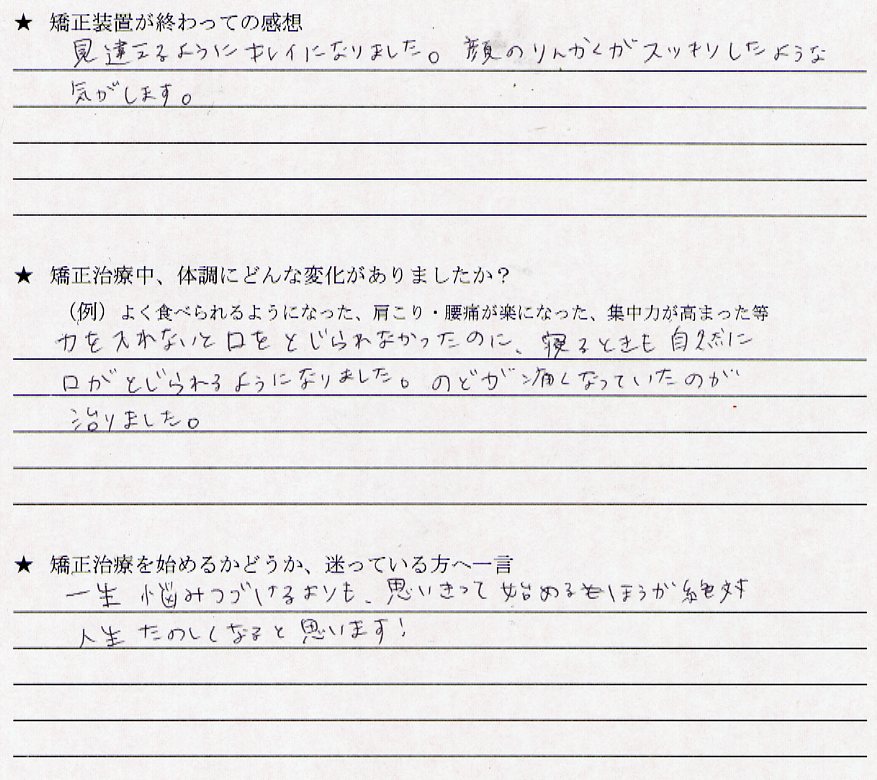 ★ 矯正装置が終わっての感想
見違えるようにキレイになりました。顔のりんかくがスッキリしたような
気がします。
★ 矯正治療中、体調にどんな変化がありましたか?
(例)よく食べられるようになった、肩こり・腰痛が楽になった、集中力が高まった等
力を入れないと口をとじられなかったのに、寝るときも自然に
口がとじられるようになりました。のどが痛くなっていたのが
治りました。
★ 矯正治療を始めるかどうか、迷っている方へ一言
一生悩みつづけるよりも、思いきって始めるほうが絶対
人生たのしくなると思います!